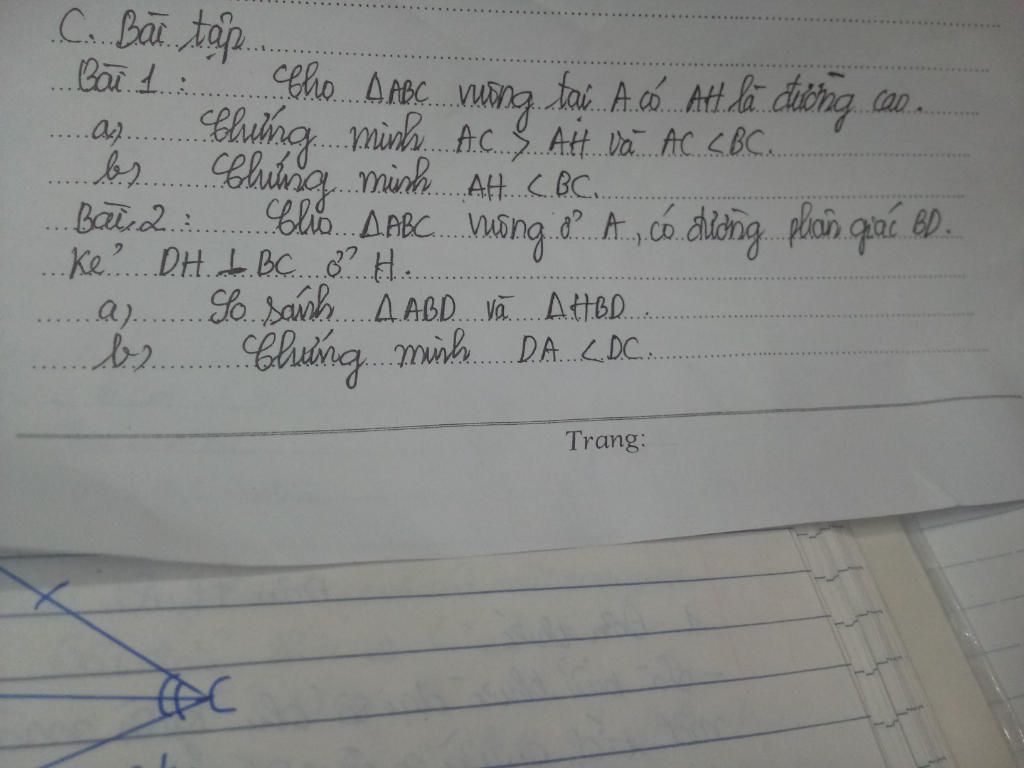 C. Bài tập
Bài 1 : Cho ΔABC vuông tại A có AH là đường cao.
a, Chứng minh AC > AH và AC < BC.
b, Chứng minh AH < BC.
Bài 2 : Cho ΔABC vuông ở A, có đường phân giác BD.
Kẻ DH ⊥ BC ở H.
a, So sánh ΔABD và ΔHBD.
b, Chứng minh DA < DC.
Trang:
C